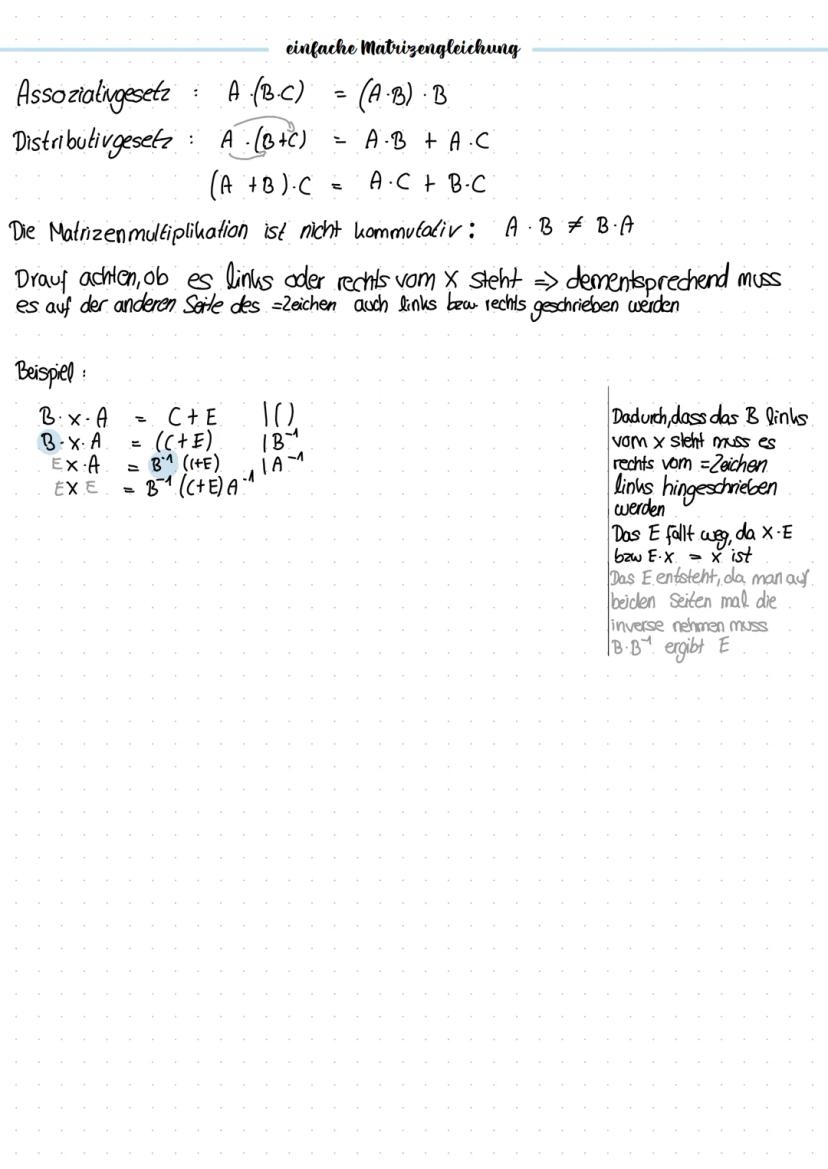 einfache Matrizengleichung
Assoziativgesetz : A·(B·C) = (A·B)·B
Distributivgesetz : A·(B+C) = A·B + A·C
(A+B)·C = A·C + B·C
Die Matrizenmultiplikation ist nicht kommutativ: A·B ≠ B·A
Drauf achten, ob es links oder rechts vom X steht => dementsprechend muss
es auf der anderen Seite des =Zeichen auch links bzw rechts geschrieben werden
Beispiel:
B·X·A = C+E |()
B·X·A = (C+E) |B⁻¹
EX·A = B⁻¹(C+E) |A⁻¹
EXE = B⁻¹(C+E)A⁻¹
Dadurch, dass das B links
vom x steht muss es
rechts vom =Zeichen
links hingeschrieben
werden
Das E fällt weg, da X·E
bzw E·X = X ist
Das E entsteht, da man auf
beiden Seiten mal die
inverse nehmen muss
B·B⁻¹ ergibt E